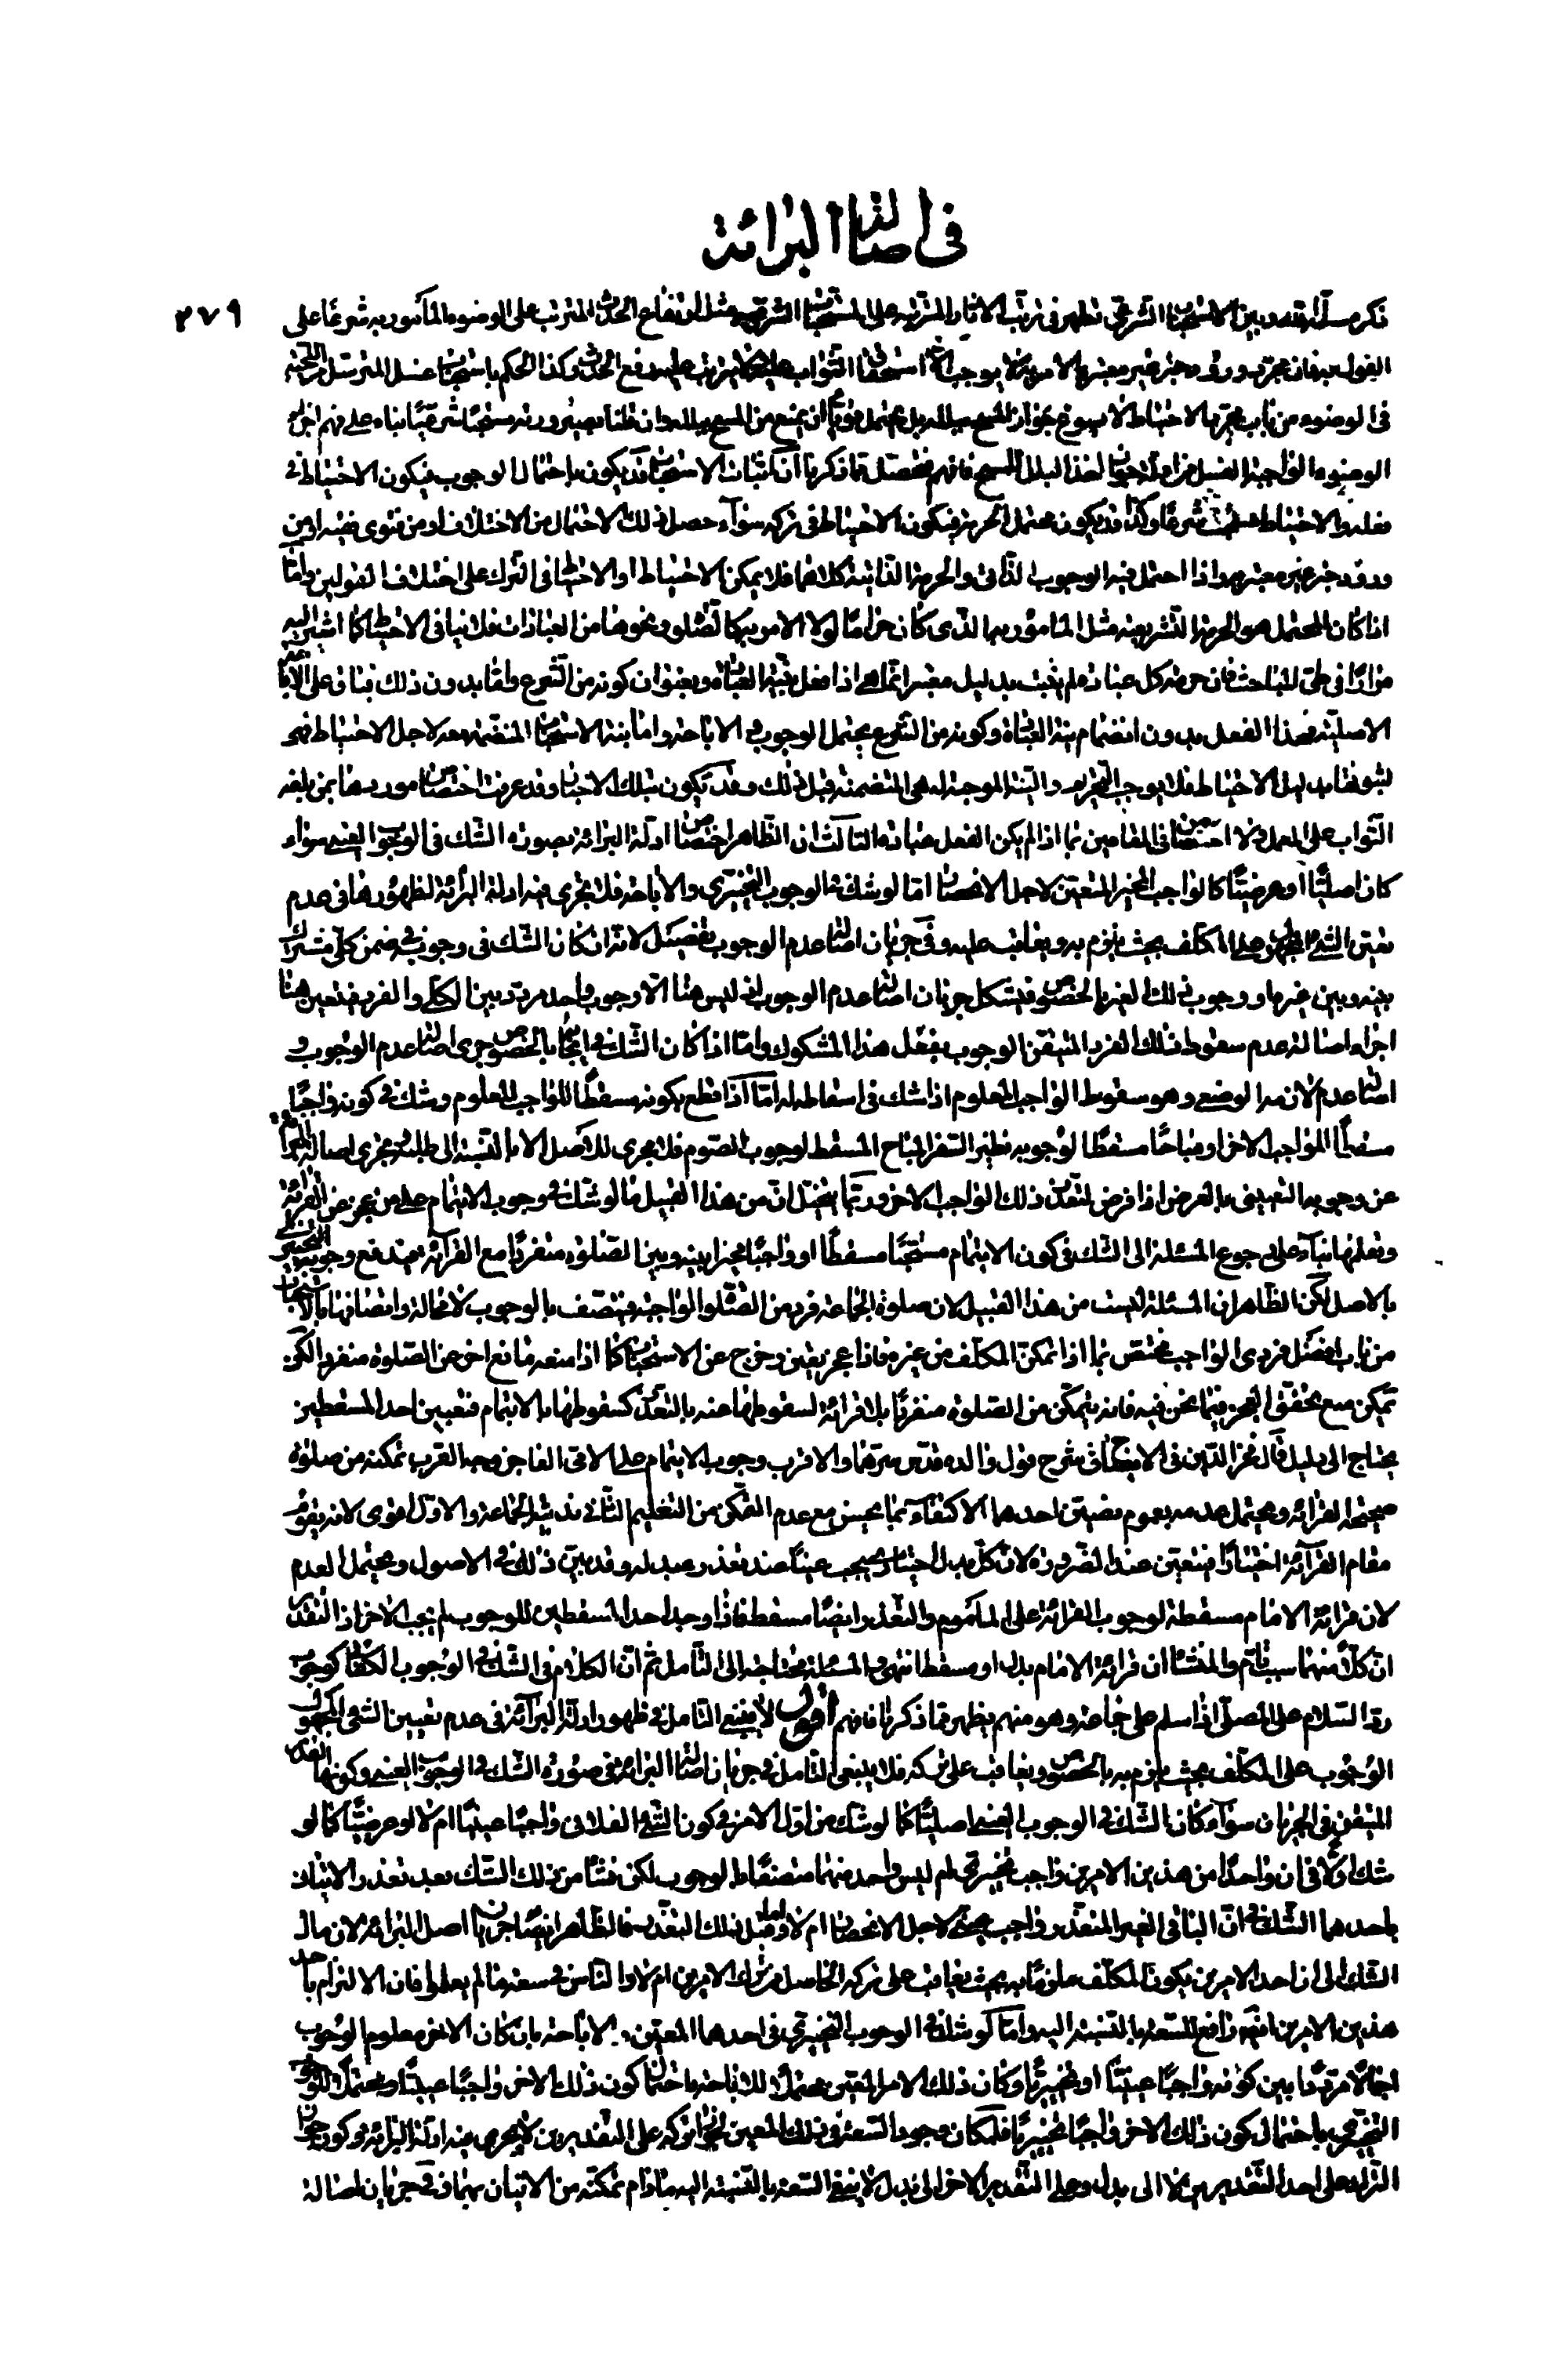 في اصالة البرائة
٢٧٩
الاستحباب الشرعي تظهر في ترتب الاثار المترتبة على المستحبات الشرعية مثل ارتفاع الحدث المترتب على الوضوء المأمور به شرعا على
القول به فان مجرد ورود خبر غير معتبر بالامر به لا يوجب الا استحقاق الثواب عليه ولا يترتب عليه رفع الحدث وكذا الحكم باستحباب غسل المسترسل من اللحية
في الوضوء من باب مجرد الاحتياط لا يسوغ جواز المسح ببلله بل يحتمل قويا ان يمنع من المسح ببلله وان قلنا بصيرورته مستحبا شرعيا بناء على
الوضوء فافهم فتحصل مما ذكرنا ان الاستحباب قد يكون باحتمال الوجوب فيكون الاحتياط في
فعله قد يكون محتمل الحرمة فيكون الاحتياط في تركه سواء حصل ذلك الاحتمال من الاختلاف او من فتوى فقيه او من
ورود خبر غير معتبر به واذا احتمل فيه الوجوب الذاتي والحرمة الذاتية كلاهما فلا يمكن الاحتياط او الاحتياط في الترك على اختلاف القولين واما
اذا كان المحتمل هو الحرمة التشريعية مثل المأمور بها الذي كان حراما لولا الامر بها كالصلوة ونحوها من العبادات فلا ينافي الاحتياط كما اشير اليه
مرارا في طي المباحث فان حرمة كل عبادة لم يثبت بدليل معتبر انما هي اذا فعل بنية العبادة وبعنوان كونه من الشرع واما بدون ذلك فباق على الاباحة
الاصلية فهذا الفعل بدون انضمام نية العبادة وكونه من الشرع يحتمل الوجوب والاباحة واما نية الاستحباب المنضمة معه لاجل الاحتياط فهو
لثبوتها بدليل الاحتياط فلا يوجب التحريم والنية الموجبة له هي المتضمنة قبل ذلك وقد يكون بتلك الاخبار وقد عرفت اختصاص موردها بمن بلغه
الثواب على العمل في المقامين بما اذا لم يكن الفعل عبادة الثالث ان الظاهر اختصاص ادلة البرائة بصورة الشك في الوجوب العيني سواء
كان اصليا او عرضيا كالواجب المخير المتعين لاجل الانحصار اما لو شك في الوجوب التخييري والاباحة فلا تجري فيه ادلة البرائة لظهورها في عدم
تعين الشيء المجهول على المكلف بحيث يلتزم به ويعاقب عليه وفي جريان اصالة عدم الوجوب تفصيل لانه ان كان الشك في وجوبه في ضمن كلي مشترك
بينه وبين غيره او وجوب ذلك الغير بالخصوص فيشكل جريان اصالة عدم الوجوب اذ ليس هنا الا وجوب واحد مردد بين الكلي والفرد فتعين هنا
اجراء اصالة عدم سقوط ذلك الفرد المتيقن الوجوب بفعل هذا المشكوك واما اذا كان الشك في ايجابه بالخصوص جرى اصالة عدم الوجوب و
اصالة عدم لازمه الوضعي وهو سقوط الواجب المعلوم اذا شك في اسقاطه له اما اذا قطع بكونه مسقطا للواجب المعلوم وشك في كونه واجبا
مسقطا للواجب الاخر او مباحا مسقطا لوجوبه نظير السفر المباح المسقط لوجوب الصوم فلا مجرى للاصل الا بالنسبة الى طلبه وتجري اصالة البرائة
عن وجوبه التعييني بالعرض اذا فرض تعذر ذلك الواجب الاخر وربما يتخيل ان من هذا القبيل ما لو شك في وجوب الايتمام على من عجز عن القرائة
وتعلمها بناء على رجوع المسئلة الى الشك في كون الايتمام مستحبا مسقطا او واجبا مخيرا بينه وبين الصلوة منفردا مع القرائة فيدفع وجوبه التخييري
بالاصل لكن الظاهر ان المسئلة ليست من هذا القبيل لان صلوة الجماعة فرد من الصلوة الواجبة فتتصف بالوجوب لا محالة واتصافها بالاستحباب
من باب افضل فردي الواجب فيختص بما اذا تمكن المكلف من غيره فاذا عجز تعين وخرج عن الاستحباب كما اذا منعه مانع اخر عن الصلوة منفردا لكن
يمكن منع تحقق العجز فيما نحن فيه فانه يتمكن من الصلوة منفردا بلا قرائة لسقوطها عنه بالتعذر كسقوطها بالايتمام فتعيين احد المسقطين
يحتاج الى دليل قال فخر الدين في الايضاح في شرح قول والده قدس سرهما والاقرب وجوب الايتمام على الامي العاجز وجه القرب تمكنه من صلوة
صحيحة القرائة ويحتمل عدمه لعموم نصين احدهما الاكتفاء بما يحسن مع عدم التمكن من التعلم الثاني ندبية الجماعة والاول اقوى لانه يقوم
مقام القرائة اختيارا فيتعين عند الضرورة لان كل بدل اختياري يجب عينا عند تعذر مبدله وقد بين ذلك في الاصول ويحتمل العدم
لان قرائة الامام مسقطة لوجوب القرائة على المأموم والتعذر ايضا مسقط فاذا وجد احد المسقطين للوجوب لم يجب الاخر اذ التقدير
ان كلا منهما سبب تام والمنشأ ان قرائة الامام بدل او مسقط انتهى والمسئلة محتاجة الى التأمل ثم ان الكلام في الشك في الوجوب الكفائي كوجوب
رد السلام على المصلي اذا سلم على جماعة وهو منهم يظهر مما ذكرنا فافهم اقول لا ينبغي التامل في ظهور ادلة البرائة في عدم تعيين الشيء المجهول
الوجوب على المكلف بحيث يلتزم به بالخصوص ويعاقب على تركه فلا ينبغي التامل في جريان اصالة البرائة في صورة الشك في الوجوب العيني وكونها القدر
المتيقن في الجريان سواء كان الشك في الوجوب العيني اصليا كما لو شك من اول الامر في كون الشيء الفلاني واجبا عينيا ام لا او عرضيا كما لو
شك اولا في ان واحدا من هذين الامرين واجب تخييري ام ليس واحد منهما متصفا بالوجوب لكن نشأ من ذلك الشك بعد تعذر الاتيان
باحدهما الشك في ان الباقي الغير المتعذر واجب لاجل الانحصار ام لا فالظاهر ايضا جريان اصل البرائة لان مال
الشك الى ان احد الامرين يكون المكلف ملزما به بحيث يعاقب على تركه الحاصل من ترك الامرين ام لا والناس في سعة ما لم يعلموا فان الالتزام باحد
هذين الامرين رافع للسعة بالنسبة اليه واما لو شك في الوجوب التخييري في احدهما المعين والاباحة بان كان الاخر معلوم الوجوب
اجمالا مرددا بين كونه واجبا عينيا او تخييريا وكان ذلك الامر المعين محتملا للاباحة باحتمال كون ذلك الاخر واجبا عينيا ومحتملا للوجوب
التخييري باحتمال كون ذلك الاخر واجبا تخييريا فلمكان وجود السعة في ذلك المعين لجواز تركه على التقديرين لا يجري فيه ادلة البرائة وكون جواز
الترك على احد التقديرين لا الى بدل وعلى التقدير الاخر الى بدل لا ينفي السعة بالنسبة اليه ما دام تمكنه من الاتيان بهما وفي جريان اصالة